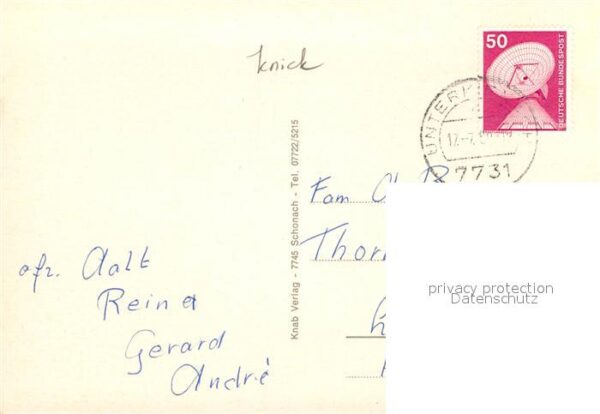 knick
50
DEUTSCHE BUNDESPOST
7731
Knab Verlag - 7745 Schonach - Tel. 07722/5215
Fam
afz. Aalt
Reina
Gerard
André
privacy protection
Datenschutz